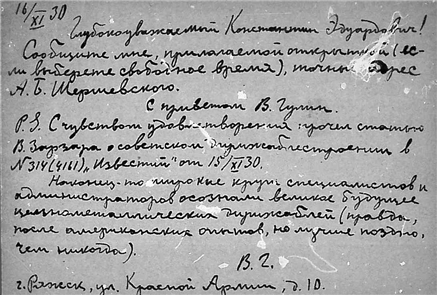 16/XI 30
Глубокоуважаемый Константин Эдуардович!
Сообщите мне, прилагаемой открыткой (ес-
ли выберете свободное время), точный адрес
А. Б. Шершевского.
С приветом В. Гулин.
P.S. С чувством удовлетворений прочел статью
В. Зарзара о советском дирижаблестроении в
N 314 (4161) „Известий" от 15/XI 30.
Наконец-то широкие круги специалистов и
администраторов осознали великое будущее
цельнометаллических дирижаблей (правда,
после американских опытов, но лучше поздно,
чем никогда).
В. Г.
г. Ряжск, ул. Красной Армии, д. 10.